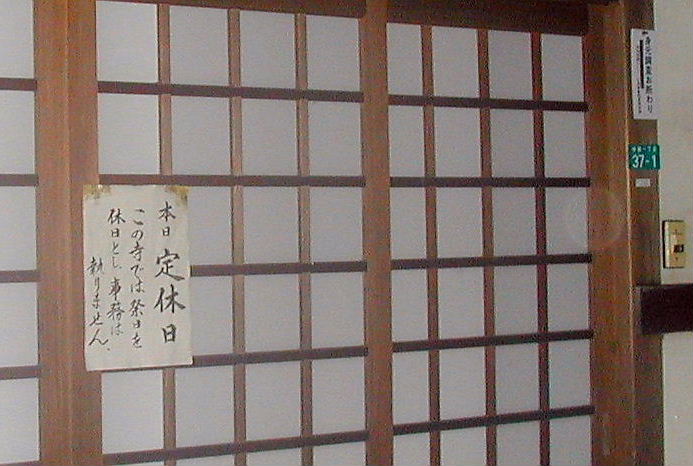 本日 定休日
この寺では祭日を
休日とし事務は、
執りません。
身元調査お断わり
37-1